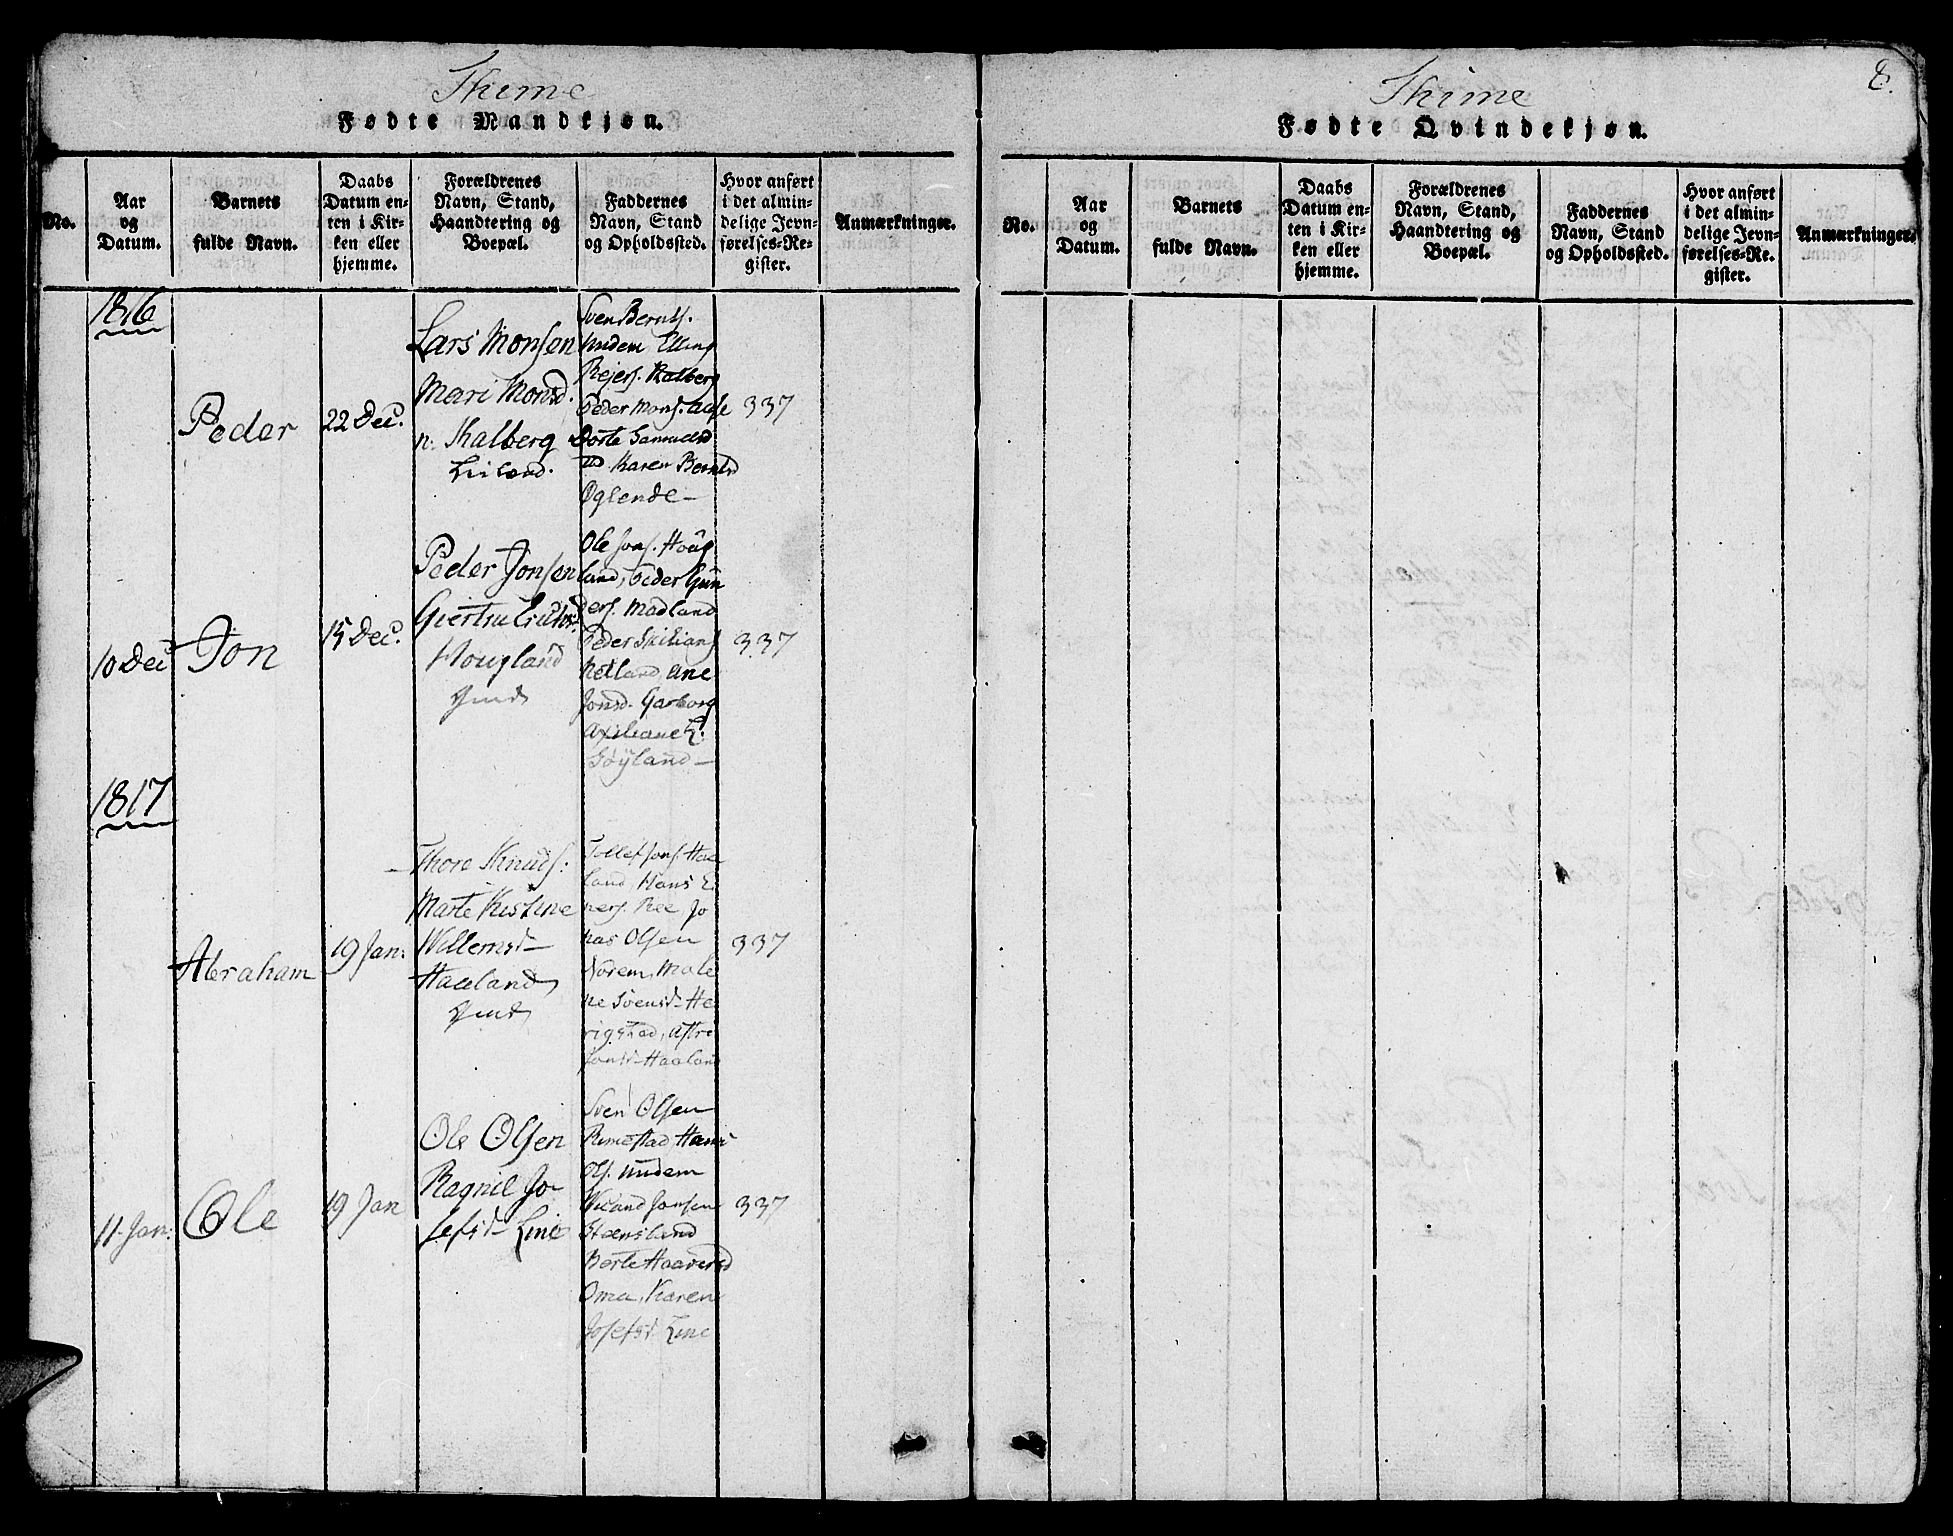 Thime
Fødte Mandkjøn.
No.
Aar
og
Datum.
Barnets
fulde Navn.
Daabs
Datum en-
ten i Kir-
ken eller
hjemme.
Forældrenes
Navn, Stand,
Haandtering og
Boepæl.
Faddernes
Navn, Stand
og Opholdssted.
Hvor anført
i det almin-
delige Jevn-
førelses-Re-
gister.
Anmærkninger.
1816
Peder
22 Dec.
Lars Monsen
Mari Monsd.
Kalberg
Sven Bernts.
Undem, Elling
Rejers. Kalberg
Peder Mons.
Dorte Samuelsd
Karen Berntsd
Øglende
337
10 Dec
Jon
15 Dec.
Peder Jonsen
Giertru
Hougland
Ole Jons. Houg
land, Peder Gun
ders. Madland
Peder
Netland, Ane
Jonsd. Garborg
Søyland
337
1817
Abraham
19 Jan:
Thore Knuds:
Marte Kistine
Willemsd
Haaland
Tollef Jons. Haa
land, Hans E
ners. Ree, Jo
nas Olsen
Norem, Male
ne Svensd He
rigstad, Astri
Jonsd Haaland
337
11 Jan:
Ole
19 Jan
Ole Olsen
Ragnil Jo
sefsd Line
Sven Olsen
Rimestad, Hans
Ols. Undem
Jonsen
Steensland
Berte Haaversd
Oma, Karen
Josefsd Line
337
Thime
8.
Fødte Qvindekjøn.
No.
Aar
og
Datum.
Barnets
fulde Navn.
Daabs
Datum en-
ten i Kir-
ken eller
hjemme.
Forældrenes
Navn, Stand,
Haandtering og
Boepæl.
Faddernes
Navn, Stand
og Opholdssted.
Hvor anført
i det almin-
delige Jevn-
førelses-Re-
gister.
Anmærkninger.